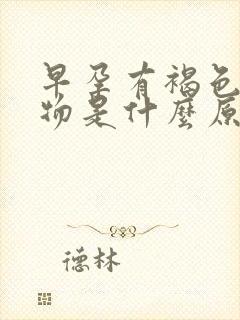 早孕有褐色
物是什麼原
德林